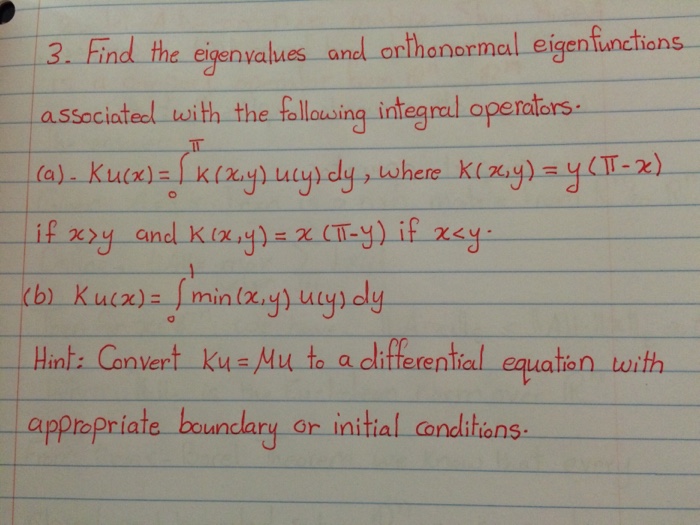 3. Find the eigenvalues and orthonormal eigenfunctions
associated with the following integral operators.
(a)- Ku(x)=∫₀^π K(x,y) u(y) dy, where K(x,y) = y(π-x)
if x>y and K(x,y) = x (π-y) if x<y.
(b) Ku(x)= ∫₀¹ min(x,y) u(y) dy
Hint: Convert Ku=Mu to a differential equation with
appropriate boundary or initial conditions.